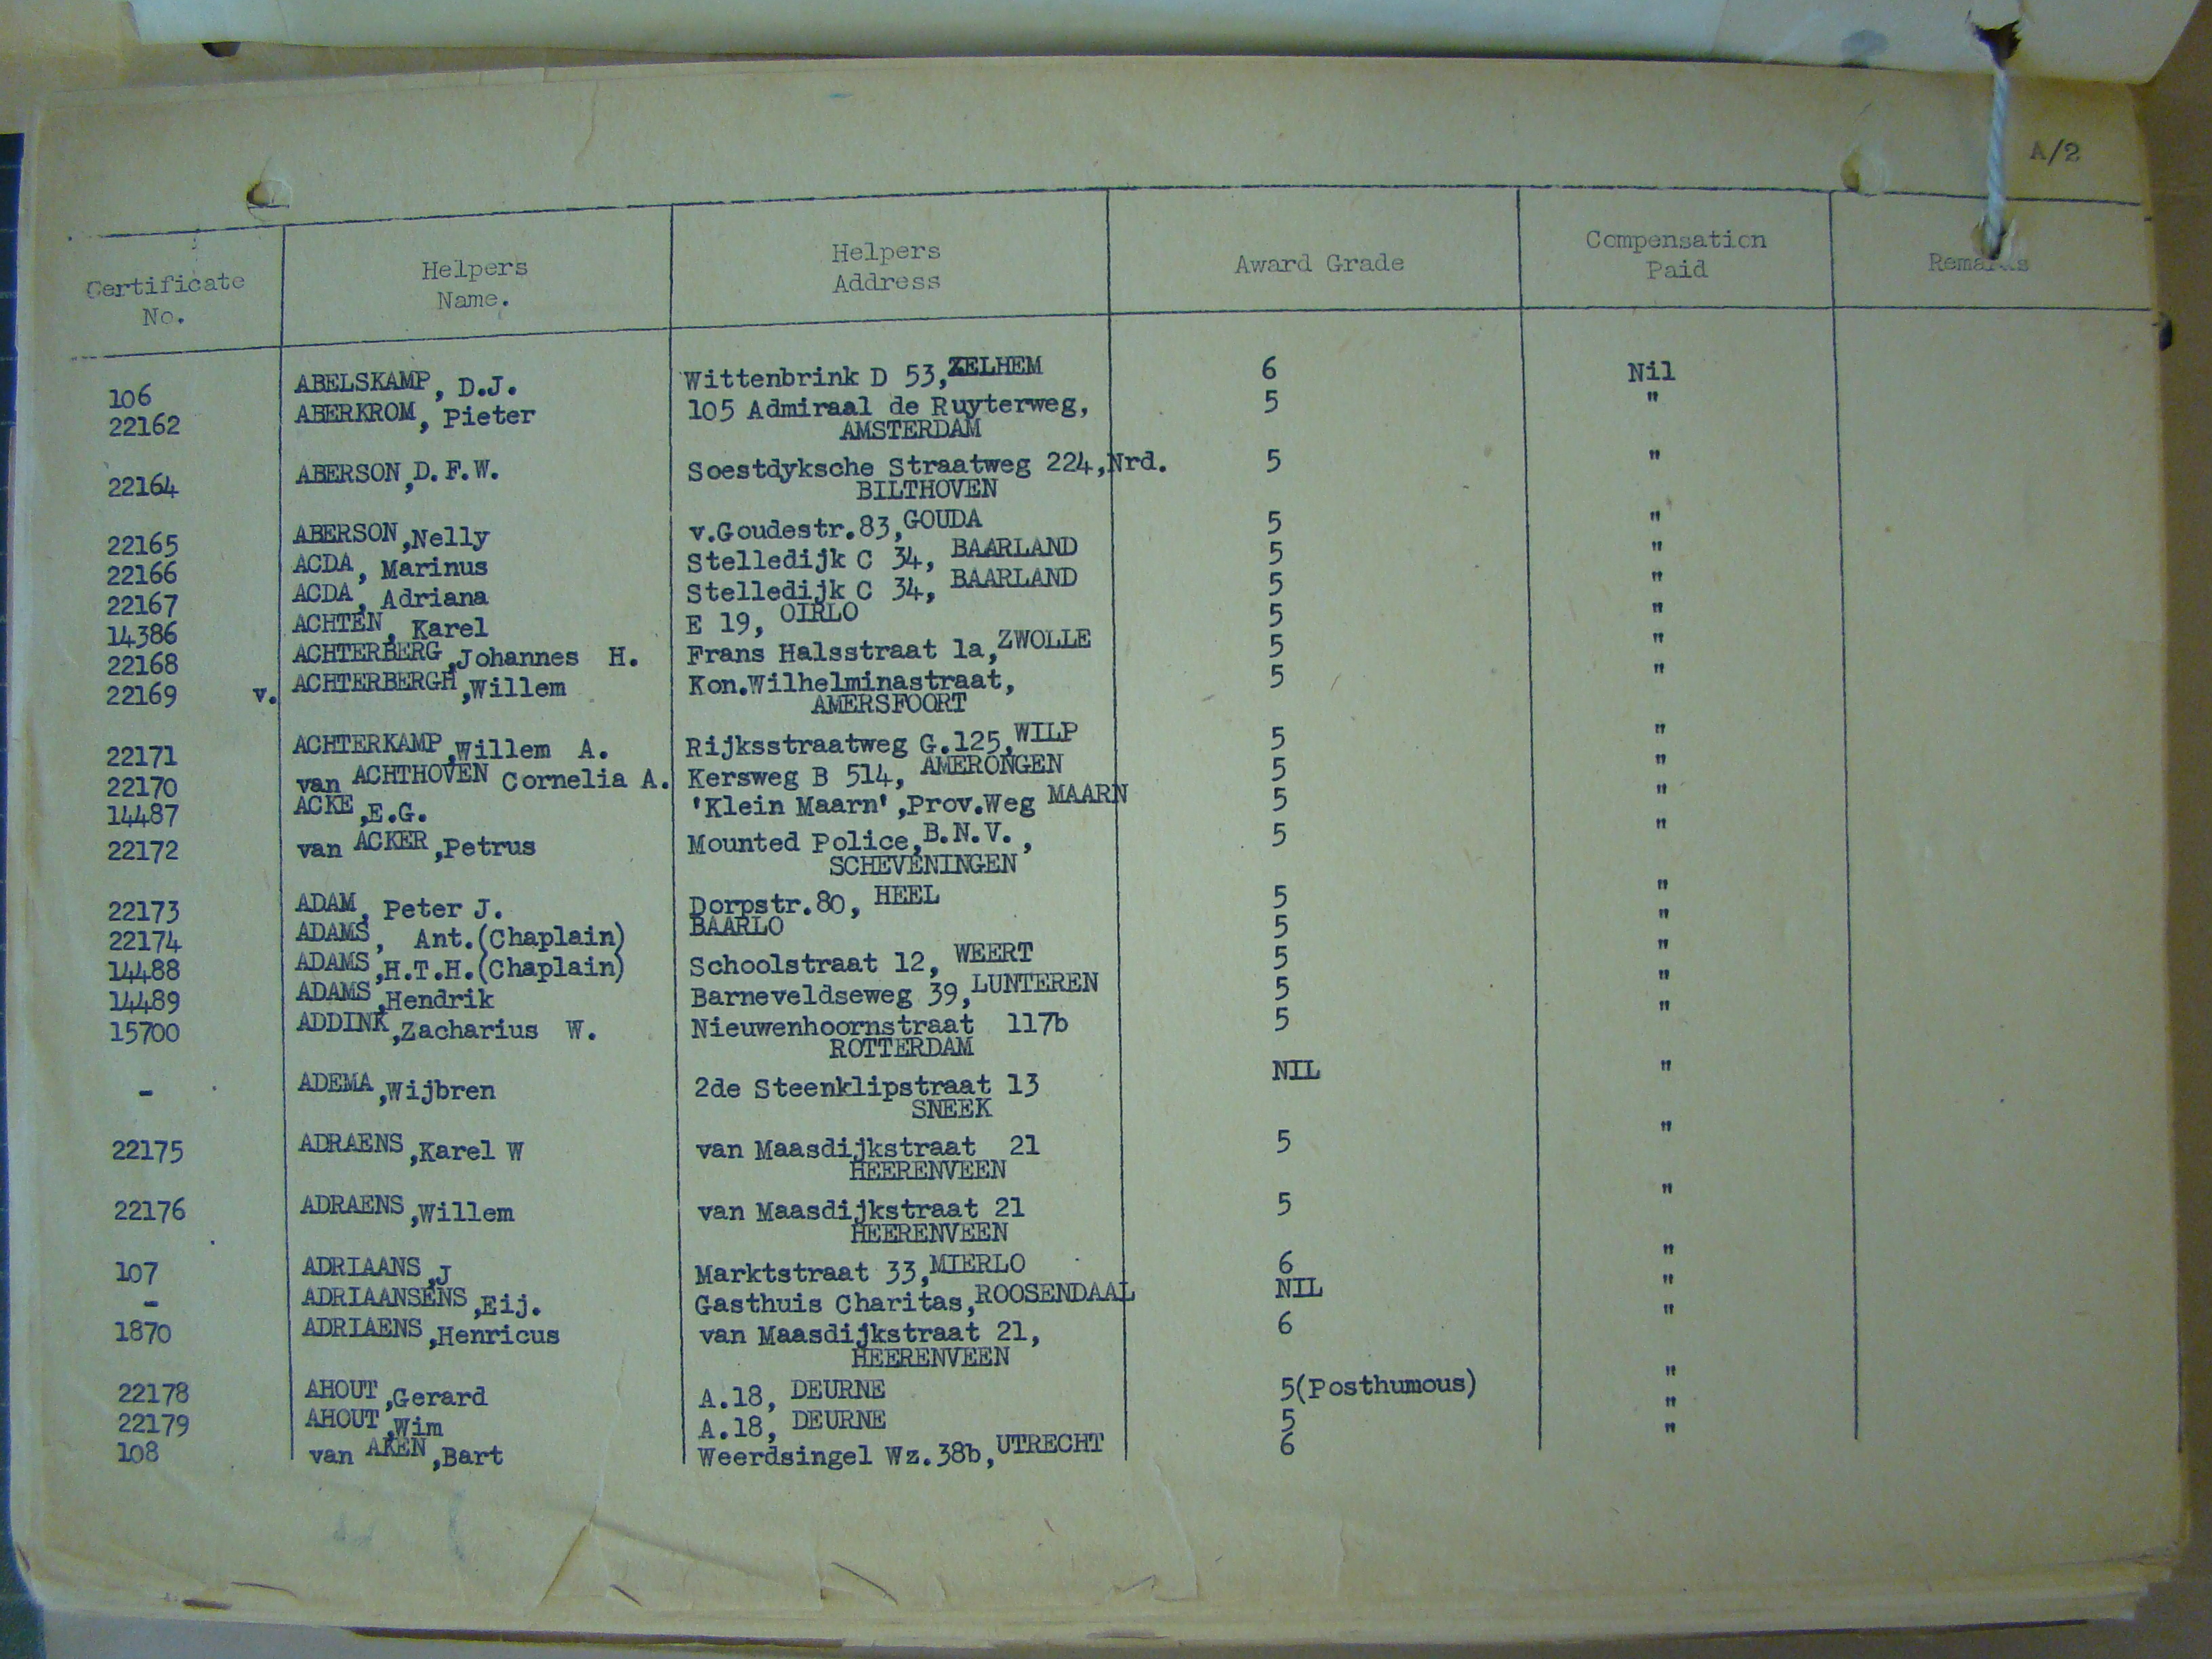 A/2
Certificate No. Helpers Name. Helpers Address Award Grade Compensation Paid Remarks
106 ABELSKAMP, D.J. Wittenbrink D 53, ZELHEM 6 Nil
22162 ABERKROM, Pieter 105 Admiraal de Ruyterweg, 5 "
AMSTERDAM
22164 ABERSON, D.F.W. Soestdyksche Straatweg 224, Nrd. 5 "
BILTHOVEN
22165 ABERSON, Nelly v.Goudestr.83, GOUDA 5 "
22166 ACDA, Marinus Stelledijk C 34, BAARLAND 5 "
22167 ACDA, Adriana Stelledijk C 34, BAARLAND 5 "
14386 ACHTEN, Karel E 19, OIRLO 5 "
22168 ACHTERBERG, Johannes H. Frans Halsstraat 1a, ZWOLLE 5 "
22169 v. ACHTERBERGH, Willem Kon.Wilhelminastraat, 5 "
AMERSFOORT
22171 ACHTERKAMP, Willem A. Rijksstraatweg G.125, WILP 5 "
22170 van ACHTHOVEN Cornelia A. Kersweg B 514, AMERONGEN 5 "
14487 ACKE, E.G. 'Klein Maarn', Prov.Weg MAARN 5 "
22172 van ACKER, Petrus Mounted Police, B.N.V., 5 "
SCHEVENINGEN
22173 ADAM, Peter J. Dorpstr.80, HEEL 5 "
22174 ADAMS, Ant.(Chaplain) BAARLO 5 "
14488 ADAMS, H.T.H.(Chaplain) Schoolstraat 12, WEERT 5 "
14489 ADAMS, Hendrik Barneveldseweg 39, LUNTEREN 5 "
15700 ADDINK, Zacharius W. Nieuwenhoornstraat 117b 5 "
ROTTERDAM
- ADEMA, Wijbren 2de Steenklipstraat 13 NIL "
SNEEK
22175 ADRAENS, Karel W van Maasdijkstraat 21 5 "
HEERENVEEN
22176 ADRAENS, Willem van Maasdijkstraat 21 5 "
HEERENVEEN
107 ADRIAANS, J Marktstraat 33, MIERLO 6 "
- ADRIAANSENS, Eij. Gasthuis Charitas, ROOSENDAAL NIL "
1870 ADRIAENS, Henricus van Maasdijkstraat 21, 6 "
HEERENVEEN
22178 AHOUT, Gerard A.18, DEURNE 5(Posthumous) "
22179 AHOUT, Wim A.18, DEURNE 5 "
108 van AKEN, Bart Weerdsingel Wz.38b, UTRECHT 6 "